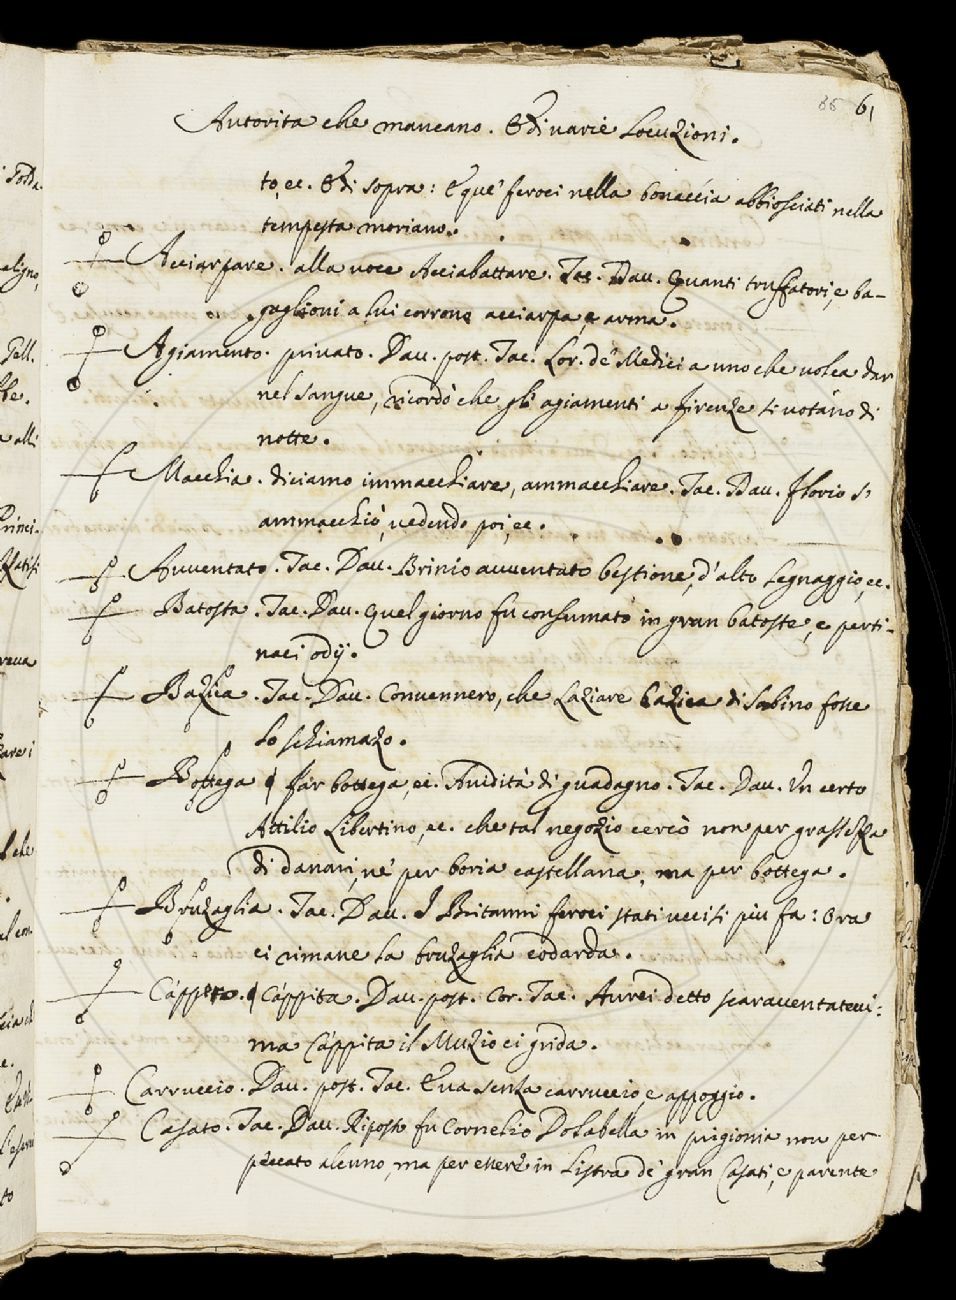 86 61
Autorita che mancano. E di varie Locuzioni.
to, ec. E di sopra: E que' feroci nella bonaccia abbiosciati nella
tempesta moriano.
Acciarpare. alla voce Acciabattare. Tac. Dav. Quanti truffatori, e ba-
guglioni a lui corrono acciarpa, e arma.
Agiamento. privato. Dav. post. Tac. Lor. de' Medici a uno che volea dar
nel sangue, ricordò che gli agiamenti a firenze si votano di
notte.
Macchia. diciamo immacchiare, ammacchiare. Tac. Dav. Florio s'
ammacchiò, vedendo poi, ec.
Avventato. Tac. Dav. Brinio avventato bestione, d'alto legnaggio, ec.
Batosta. Tac. Dav. Quel giorno fu consumato in gran batoste, e perti-
naci odij.
Bazica. Tac. Dav. Convennero, che Laziare bazica di Sabino fosse
lo schiamazo.
Bottega far bottega, ec. Avidità di guadagno. Tac. Dav. Un certo
Attilio Libertino, ec. che tal negozio cercò non per grassezza
di danari, ne' per boria castellana, ma per bottega.
Bruzaglia. Tac. Dav. I Britanni feroci stati uccisi più fa: Ora
ci rimane la bruzaglia codarda.
Cappita. Dav. post. Cor. Tac. Aurei detto scaraventatevi:
ma Càppita il Muzio ci grida.
Carruccio. Dav. post. Tac. E va senza carruccio, e appoggio.
Casato. Tac. Dav. Riposto fu Cornelio Dolabella in prigionia non per
peccato alcuno, ma per essere in Listra de' gran Casati, e parente